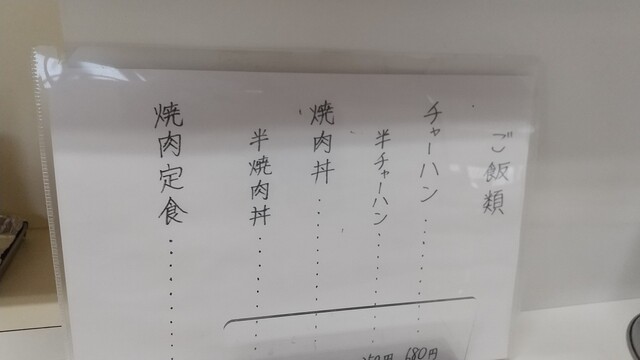 ご飯類
チャーハン
680円
半チャーハン
焼肉丼
半焼肉丼
焼肉定食